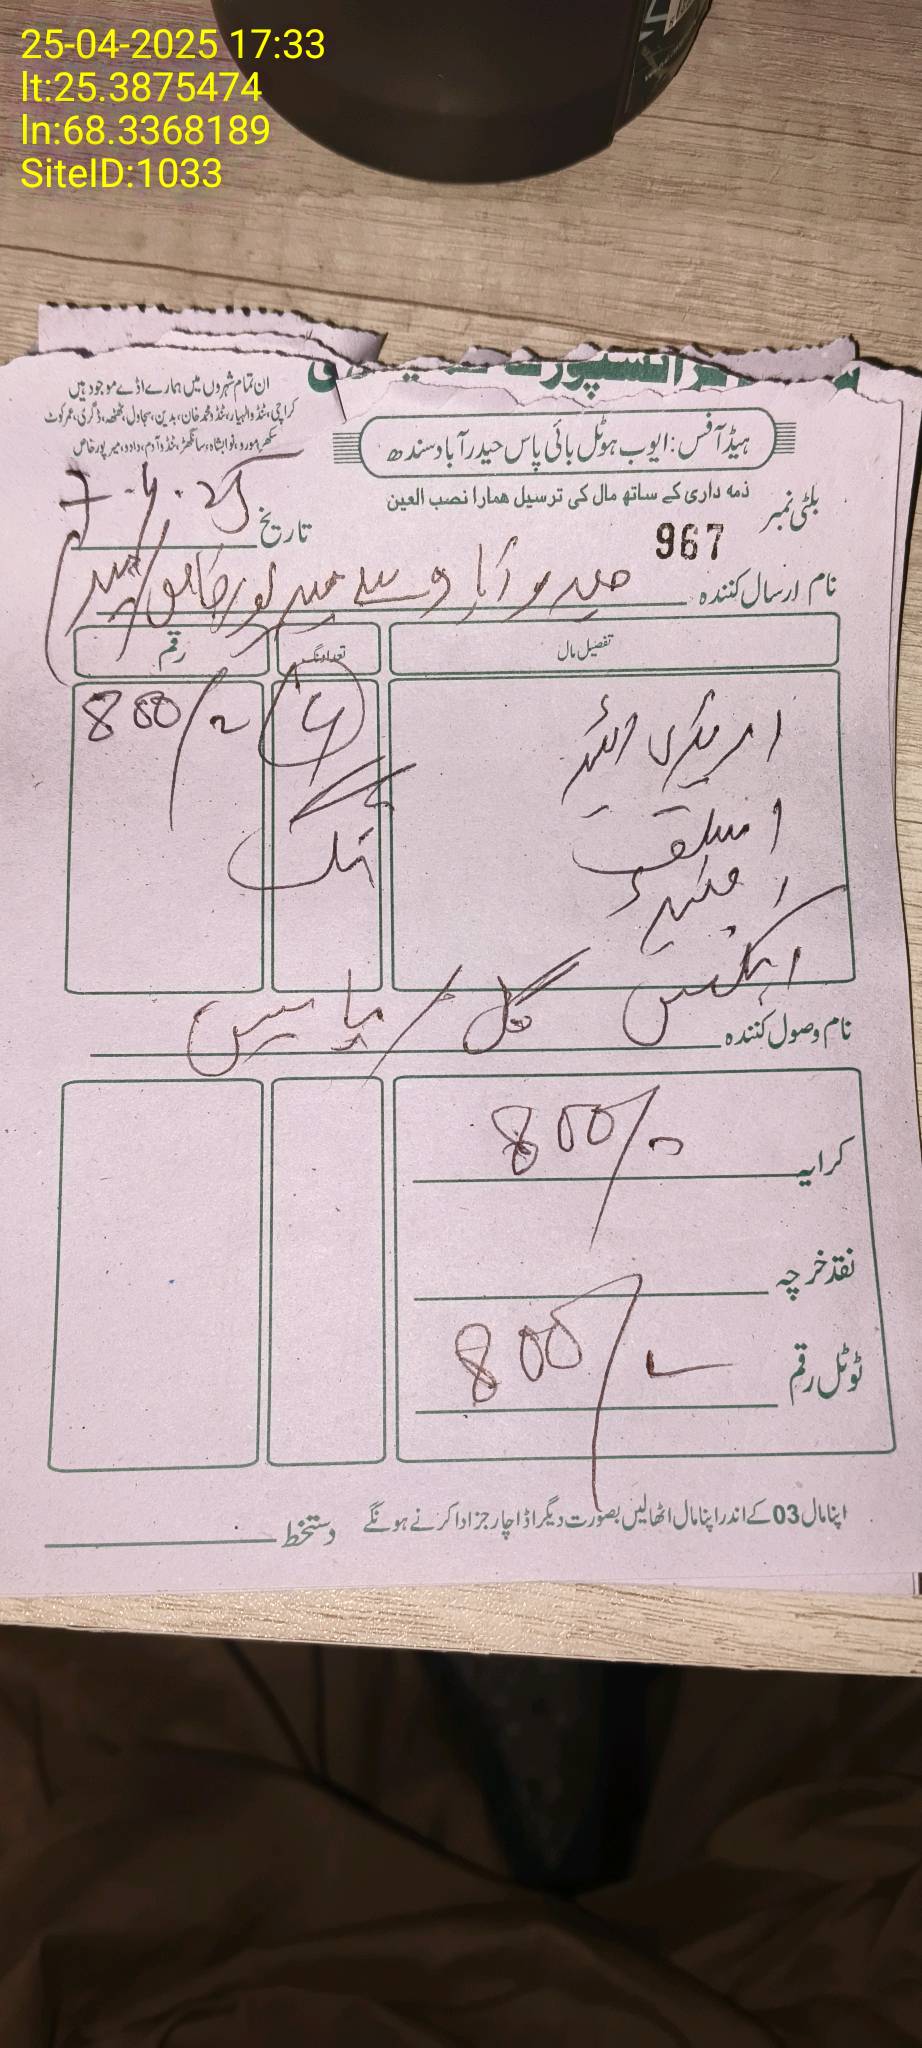 25-04-2025 17:33
lt:25.3875474
ln:68.3368189
SiteID:1033
ان تمام شہروں میں ہمارے اڈے موجود ہیں
کراچی، ٹنڈوالہیار، ٹنڈومحمد خان، بدین، سجاول، ٹھٹھہ، ڈگری، عمرکوٹ
سکھر، مورو، نوابشاہ، سانگھڑ، ٹنڈوآدم، دادو، میرپورخاص
ہیڈ آفس: ایوب ہوٹل بائی پاس حیدرآباد سندھ
ذمہ داری کے ساتھ مال کی ترسیل ہمارا نصب العین
بلٹی نمبر 967
تاریخ 7.4.25
نام ارسال کنندہ حیدرآباد سے میرپورخاص
تفصیل مال تعداد نگ رقم
800/-
نگ
نام وصول کنندہ گل
کرایہ 800/-
نقد خرچہ
ٹوٹل رقم 800/-
اپنا مال 03 کے اندر اپنا مال اٹھالیں بصورت دیگر اڈا چارجز ادا کرنے ہونگے دستخط